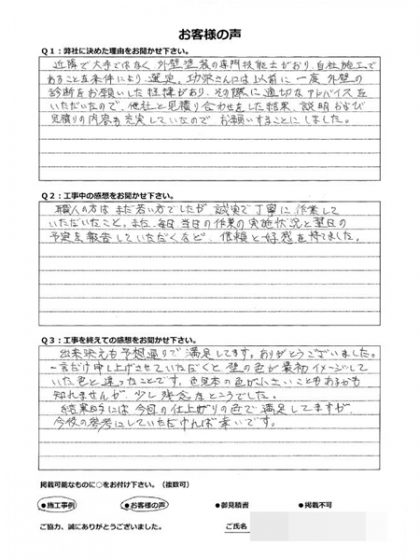 お客様の声
Q1：弊社に決めた理由をお聞かせ下さい。
近隣で大手ではなく、外壁塗装の専門技能士がおり、自社施工で
あることを条件により選定。功栄さんには以前に一度外壁の
診断をお願いした経緯があり、その際に適切なアドバイスを
いただいたので、他社と見積り合わせをした結果、説明および
見積りの内容も充実していたので お願いすることにしました。
Q2：工事中の感想をお聞かせ下さい。
職人の方は まだ若い方でしたが 誠実で丁寧に作業して
いただいたこと。また、毎日 当日の作業の実施状況と翌日の
予定を報告していただくなど、信頼と好感を持てました。
Q3：工事を終えての感想をお聞かせ下さい。
出来映えも予想通りで満足してます。ありがとうございました。
一言だけ申し上げさせていただくと、壁の色が最初イメージして
いた色と違ったことです。色見本の色が小さいこともあるかも
知れませんが、少し残念なところでした。
結果的には今回の仕上がりの色で満足してますが、
今後の参考にしていただければ幸いです。
掲載可能なものに○をお付け下さい。（複数可）
●施工事例 ●お客様の声 ●御見積書 ●掲載不可
ご協力、誠にありがとうございました。
ご氏名